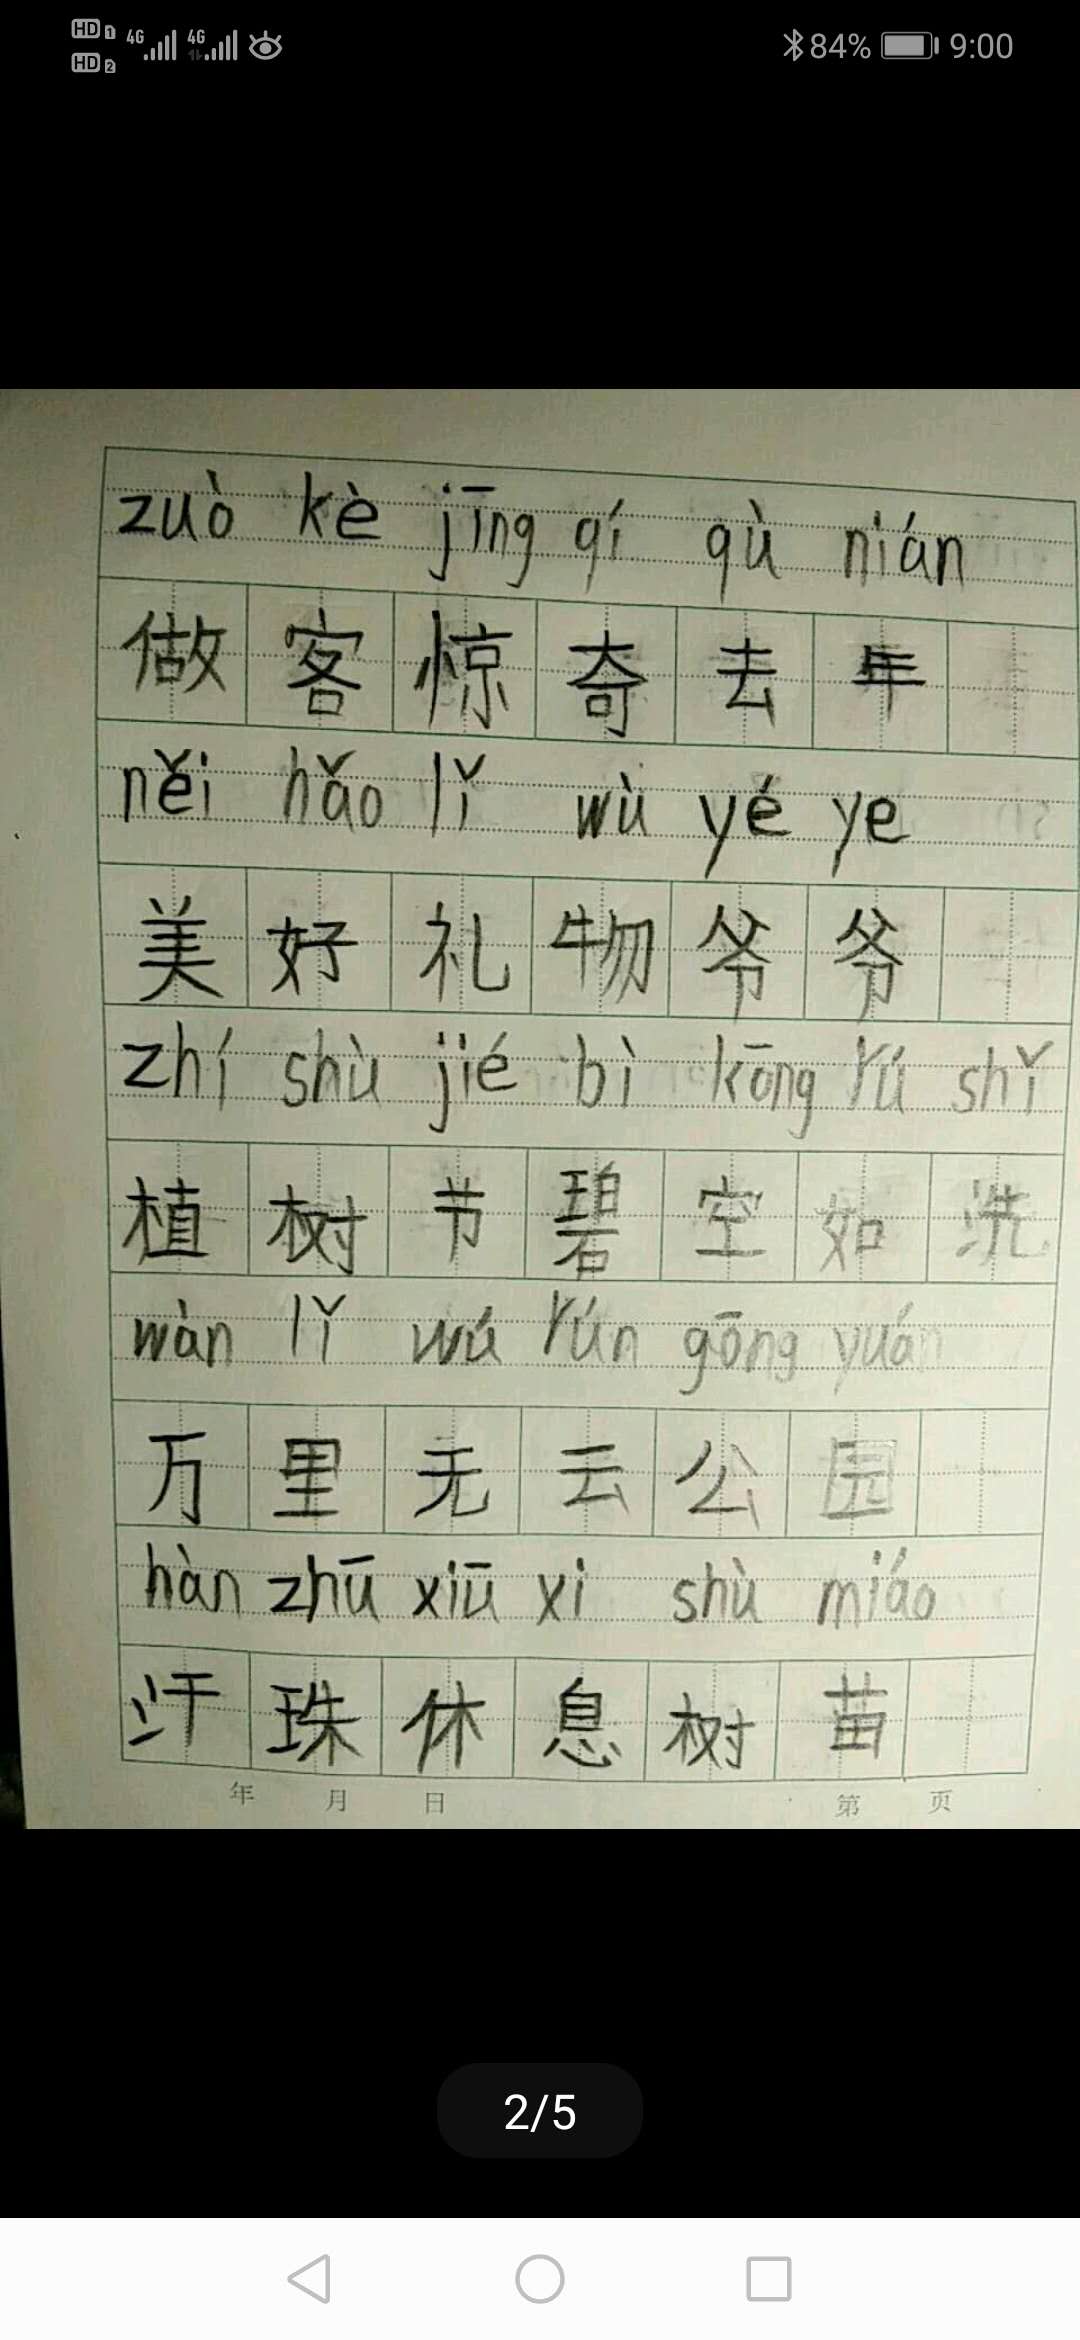 HD 1 4G 4G 84% 9:00
HD 2
zuò kè jīng qí qù nián
做客惊奇去年
něi hǎo lǐ wù yé ye
美好礼物爷爷
zhí shù jié bì kōng rú shǐ
植树节碧空如洗
wàn lǐ wú rún gōng yuán
万里无云公园
hàn zhū xiū xi shù miáo
汗珠休息树苗
年 月 日 第 页
2/5